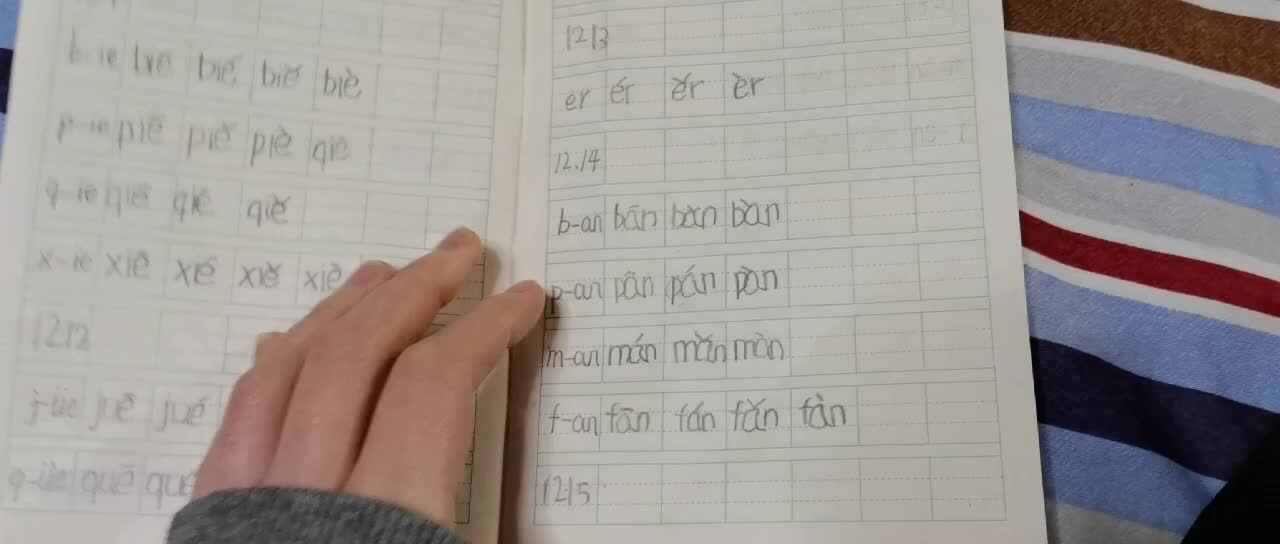 b-ie biē bié biě biè
p-ie piē piě piè qie
q-ie qiē qié qiě
x-ie xiē xié xiě xiè
1212
j-üe juē jué
q-üe quē qué
1213
er ér ěr èr
12.14
b-an bān bǎn bàn
p-an pān pán pàn
m-an mán mǎn màn
f-an fān fán fǎn fàn
1215